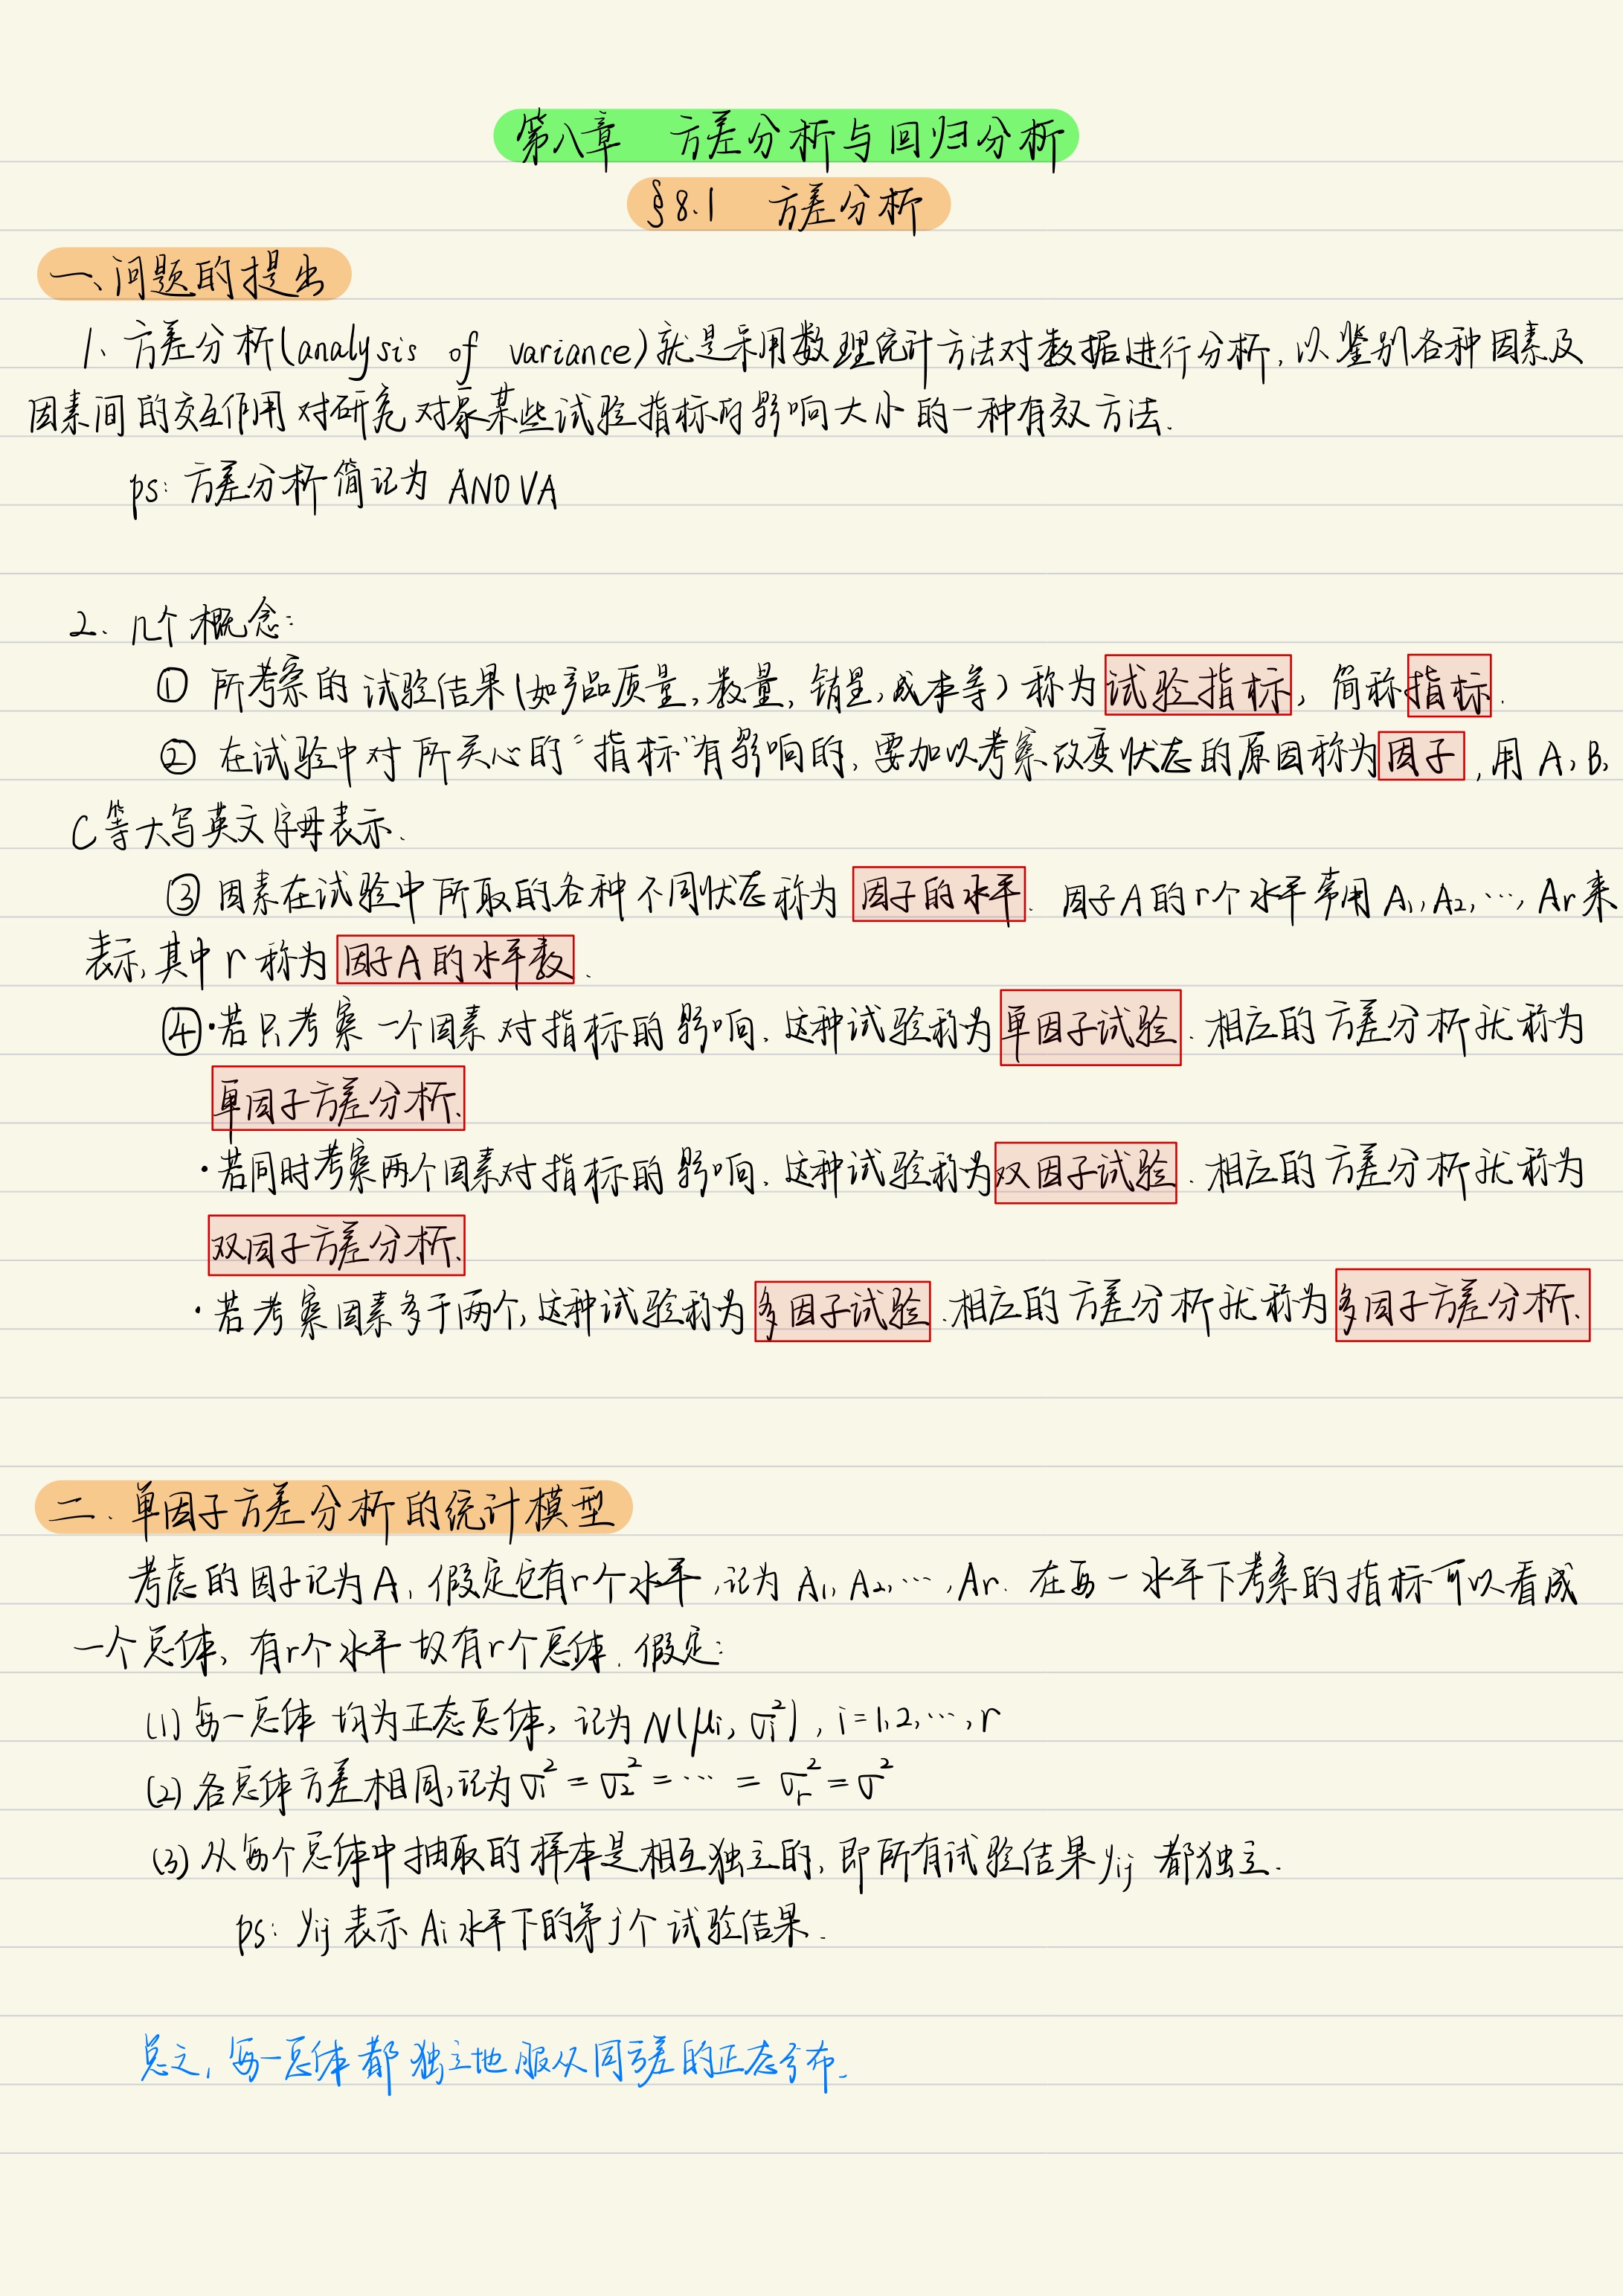 第八章 方差分析与回归分析
§8.1 方差分析
一、问题的提出
1、方差分析(analysis of variance)就是采用数理统计方法对数据进行分析,以鉴别各种因素及
因素间的交互作用对研究对象某些试验指标的影响大小的一种有效方法.
ps: 方差分析简记为 ANOVA
2. 几个概念:
① 所考察的试验结果(如产品质量,数量,销量,成本等)称为试验指标,简称指标.
② 在试验中对所关心的“指标”有影响的,要加以考察改变状态的原因称为因子,用 A, B,
C等大写英文字母表示.
③ 因素在试验中所取的各种不同状态称为因子的水平. 因子A的r个水平常用 A₁, A₂, ⋯, Ar 来
表示,其中 r 称为因子A的水平数.
④·若只考察一个因素对指标的影响.这种试验称为单因子试验.相应的方差分析就称为
单因子方差分析.
·若同时考察两个因素对指标的影响.这种试验称为双因子试验.相应的方差分析就称为
双因子方差分析.
·若考察因素多于两个,这种试验称为多因子试验.相应的方差分析就称为多因子方差分析.
二.单因子方差分析的统计模型
考虑的因子记为A,假定它有r个水平,记为 A₁, A₂, ⋯, Ar. 在每一水平下考察的指标可以看成
一个总体,有r个水平故有r个总体.假定:
(1) 每一总体均为正态总体,记为 N(μi, σi²), i=1,2,⋯,r
(2) 各总体方差相同,记为 σ₁² = σ₂² = ⋯ = σr² = σ²
(3) 从每个总体中抽取的样本是相互独立的,即所有试验结果 yij 都独立.
ps: yij 表示 Ai 水平下的第j个试验结果.
总之,每一总体都独立地服从同方差的正态分布.